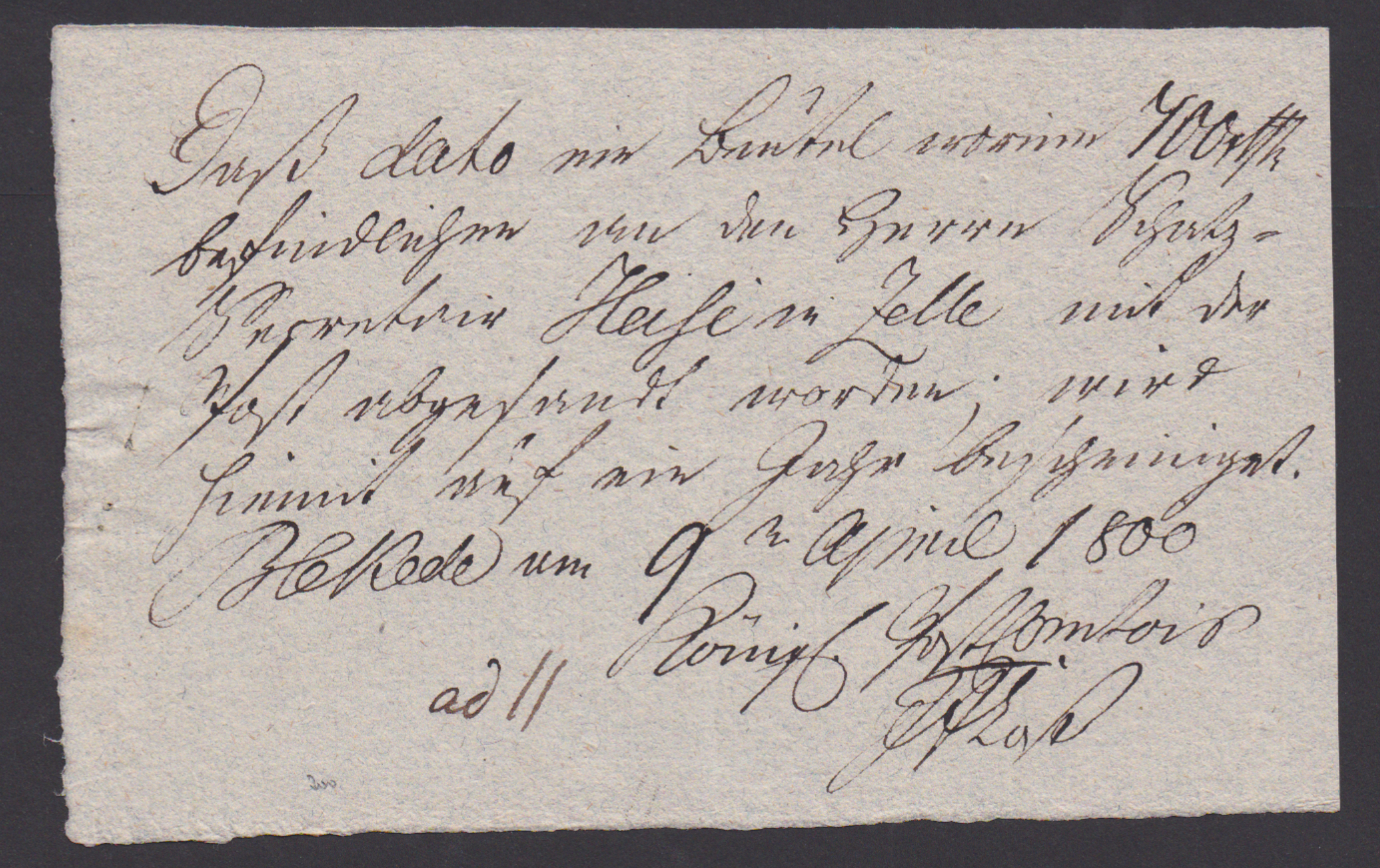 Daß dato ein Beutel worinn 700 rthlr
befindlichen an den Herrn Schatz-
Secretair Hase in Zelle mit der
Post abgesandt worden, wird
hiemit auf ein Jahr bescheiniget.
Blekede am 9n April 1800
Königl. Postcomtoir
ad 11